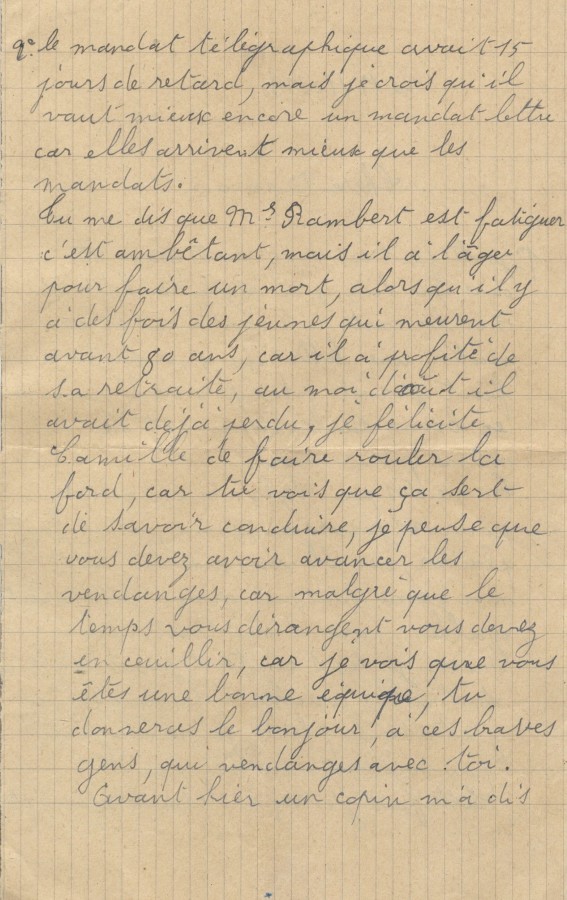 le mandat télégraphique avait 15
jours de retard, mais je crois qu'il
vaut mieux encore un mandat lettre
car elles arrivent mieux que les
mandats.
Tu me dis que Mr Rambert est fatiguer
c'est ambêtant, mais il a l'âge
pour faire un mort, alors qu'il y
à des fois des jeunes qui meurent
avant 80 ans, car il a profité de
sa retraite, au moi d'août il
avait dejà perdu, je félicite
Camille de faire rouler la
ford, car tu vois que ça sert
de savoir conduire, je pense que
vous devez avoir avancer les
vendanges, car malgré que le
temps vous dérangent vous devez
en ceuillir, car je vois que vous
êtes une bonne équipe, tu
donneras le bonjour, à ces braves
gens, qui vendanges avec toi.
Avant hier un copin m'a dis